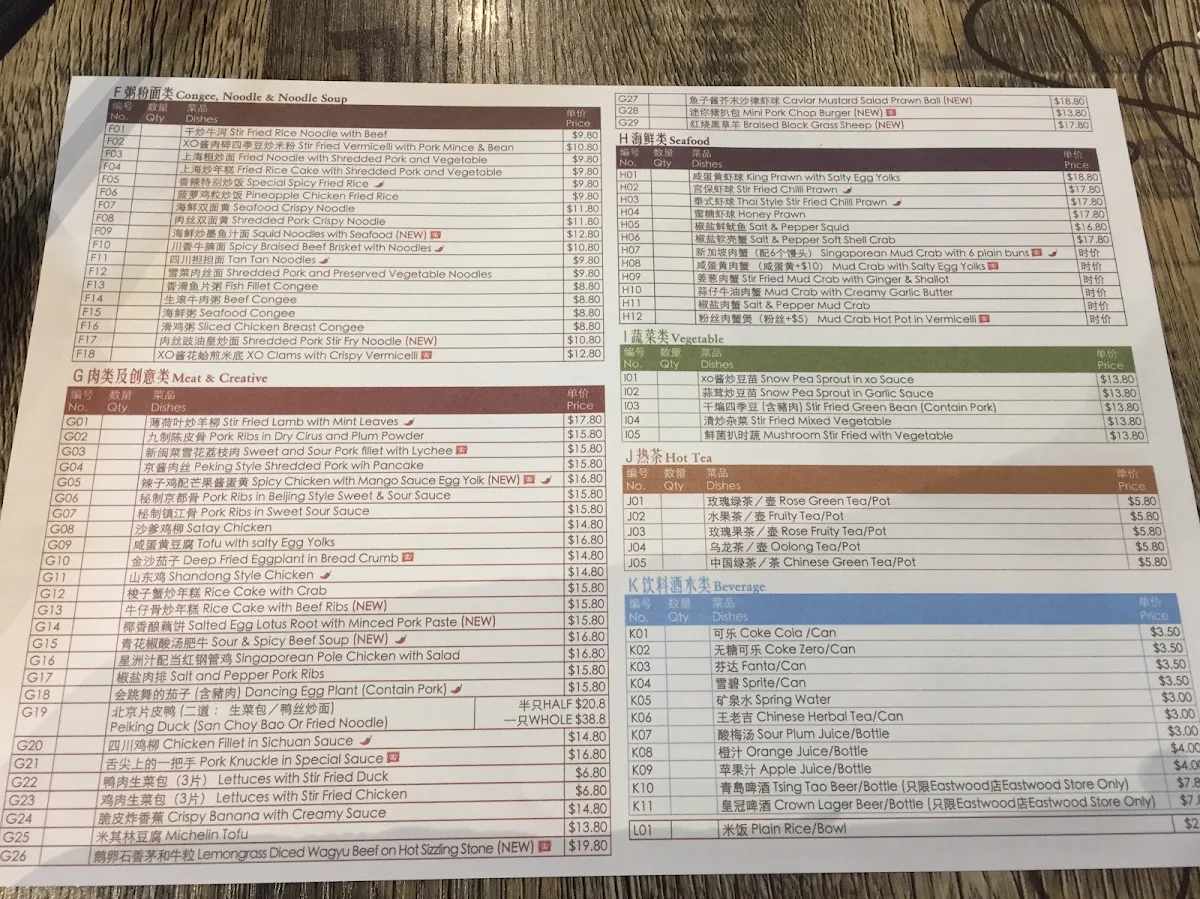 F 粥粉面类 Congee, Noodle & Noodle Soup
编号 数量 菜品 单价
No. Qty Dishes Price
F01 干炒牛河 Stir Fried Rice Noodle with Beef $9.80
F02 XO酱肉碎四季豆炒米粉 Stir Fried Vermicelli with Pork Mince & Bean $10.80
F03 上海粗炒面 Fried Noodle with Shredded Pork and Vegetable $9.80
F04 上海炒年糕 Fried Rice Cake with Shredded Pork and Vegetable $9.80
F05 香辣特别炒饭 Special Spicy Fried Rice $9.80
F06 菠萝鸡粒炒饭 Pineapple Chicken Fried Rice $9.80
F07 海鲜双面黄 Seafood Crispy Noodle $11.80
F08 肉丝双面黄 Shredded Pork Crispy Noodle $11.80
F09 海鲜炒墨鱼汁面 Squid Noodles with Seafood (NEW) $12.80
F10 川香牛腩面 Spicy Braised Beef Brisket with Noodles $10.80
F11 四川担担面 Tan Tan Noodles $9.80
F12 雪菜肉丝面 Shredded Pork and Preserved Vegetable Noodles $9.80
F13 香滑鱼片粥 Fish Fillet Congee $8.80
F14 生滚牛肉粥 Beef Congee $8.80
F15 海鲜粥 Seafood Congee $8.80
F16 滑鸡粥 Sliced Chicken Breast Congee $8.80
F17 肉丝豉油皇炒面 Shredded Pork Stir Fry Noodle (NEW) $10.80
F18 XO酱花蛤煎米底 XO Clams with Crispy Vermicelli $12.80
G 肉类及创意类 Meat & Creative
编号 数量 菜品 单价
No. Qty Dishes Price
G01 薄荷叶炒羊柳 Stir Fried Lamb with Mint Leaves $17.80
G02 九制陈皮骨 Pork Ribs in Dry Cirus and Plum Powder $15.80
G03 新闽菜雪花荔枝肉 Sweet and Sour Pork fillet with Lychee $15.80
G04 京酱肉丝 Peking Style Shredded Pork wih Pancake $15.80
G05 辣子鸡配芒果酱蛋黄 Spicy Chicken with Mango Sauce Egg Yolk (NEW) $16.80
G06 秘制京都骨 Pork Ribs in Beijing Style Sweet & Sour Sauce $15.80
G07 秘制镇江骨 Pork Ribs in Sweet Sour Sauce $15.80
G08 沙爹鸡柳 Satay Chicken $14.80
G09 咸蛋黄豆腐 Tofu with salty Egg Yolks $16.80
G10 金沙茄子 Deep Fried Eggplant in Bread Crumb $14.80
G11 山东鸡 Shandong Style Chicken $14.80
G12 梭子蟹炒年糕 Rice Cake with Crab $15.80
G13 牛仔骨炒年糕 Rice Cake with Beef Ribs (NEW) $15.80
G14 椰香酿藕饼 Salted Egg Lotus Root with Minced Pork Paste (NEW) $15.80
G15 青花椒酸汤肥牛 Sour & Spicy Beef Soup (NEW) $16.80
G16 星洲汁配当红钢管鸡 Singaporean Pole Chicken with Salad $16.80
G17 椒盐肉排 Salt and Pepper Pork Ribs $15.80
G18 会跳舞的茄子 (含豬肉) Dancing Egg Plant (Contain Pork) $15.80
G19 北京片皮鸭 (二道： 生菜包／鸭丝炒面) 半只HALF $20.8
Peiking Duck (San Choy Bao Or Fried Noodle) 一只WHOLE $38.8
G20 四川鸡柳 Chicken Fillet in Sichuan Sauce $14.80
G21 舌尖上的一把手 Pork Knuckle in Special Sauce $16.80
G22 鸭肉生菜包（3片） Lettuces with Stir Fried Duck $6.80
G23 鸡肉生菜包（3片） Lettuces with Stir Fried Chicken $6.80
G24 脆皮炸香蕉 Crispy Banana with Creamy Sauce $14.80
G25 米其林豆腐 Michelin Tofu $13.80
G26 鹅卵石香茅和牛粒 Lemongrass Diced Wagyu Beef on Hot Sizzling Stone (NEW) $19.80
G27 鱼子酱芥末沙律虾球 Caviar Mustard Salad Prawn Ball (NEW) $18.80
G28 迷你猪扒包 Mini Pork Chop Burger (NEW) $13.80
G29 红烧黑草羊 Braised Black Grass Sheep (NEW) $17.80
H 海鲜类 Seafood
编号 数量 菜品 单价
No. Qty Dishes Price
H01 咸蛋黄虾球 King Prawn with Salty Egg Yolks $18.80
H02 宫保虾球 Stir Fried Chilli Prawn $17.80
H03 泰式虾球 Thai Style Stir Fried Chilli Prawn $17.80
H04 蜜糖虾球 Honey Prawn $17.80
H05 椒盐鲜鱿鱼 Salt & Pepper Squid $16.80
H06 椒盐软壳蟹 Salt & Pepper Soft Shell Crab $17.80
H07 新加坡肉蟹（配6个馒头） Singaporean Mud Crab with 6 plain buns 时价
H08 咸蛋黄肉蟹 （咸蛋黄+$10） Mud Crab with Salty Egg Yolks 时价
H09 姜葱肉蟹 Stir Fried Mud Crab with Ginger & Shallot 时价
H10 蒜仔牛油肉蟹 Mud Crab with Creamy Garlic Butter 时价
H11 椒盐肉蟹 Salt & Pepper Mud Crab 时价
H12 粉丝肉蟹煲（粉丝+$5） Mud Crab Hot Pot in Vermicelli 时价
I 蔬菜类 Vegetable
编号 数量 菜品 单价
No. Qty Dishes Price
I01 xo酱炒豆苗 Snow Pea Sprout in xo Sauce $13.80
I02 蒜茸炒豆苗 Snow Pea Sprout in Garlic Sauce $13.80
I03 干煸四季豆 (含豬肉) Stir Fried Green Bean (Contain Pork) $13.80
I04 清炒杂菜 Stir Fried Mixed Vegetable $13.80
I05 鲜菌扒时蔬 Mushroom Stir Fried with Vegetable $13.80
J 热茶 Hot Tea
编号 数量 菜品 单价
No. Qty Dishes Price
J01 玫瑰绿茶／壶 Rose Green Tea/Pot $5.80
J02 水果茶／壶 Fruity Tea/Pot $5.80
J03 玫瑰果茶／壶 Rose Fruity Tea/Pot $5.80
J04 乌龙茶／壶 Oolong Tea/Pot $5.80
J05 中国绿茶／茶 Chinese Green Tea/Pot $5.80
K 饮料酒水类 Beverage
编号 数量 菜品 单价
No. Qty Dishes Price
K01 可乐 Coke Cola /Can $3.50
K02 无糖可乐 Coke Zero/Can $3.50
K03 芬达 Fanta/Can $3.50
K04 雪碧 Sprite/Can $3.50
K05 矿泉水 Spring Water $3.00
K06 王老吉 Chinese Herbal Tea/Can $3.00
K07 酸梅汤 Sour Plum Juice/Bottle $3.00
K08 橙汁 Orange Juice/Bottle $4.00
K09 苹果汁 Apple Juice/Bottle $4.00
K10 青島啤酒 Tsing Tao Beer/Bottle (只限Eastwood店Eastwood Store Only) $7.8
K11 皇冠啤酒 Crown Lager Beer/Bottle (只限Eastwood店Eastwood Store Only) $7.8
L01 米饭 Plain Rice/Bowl $2